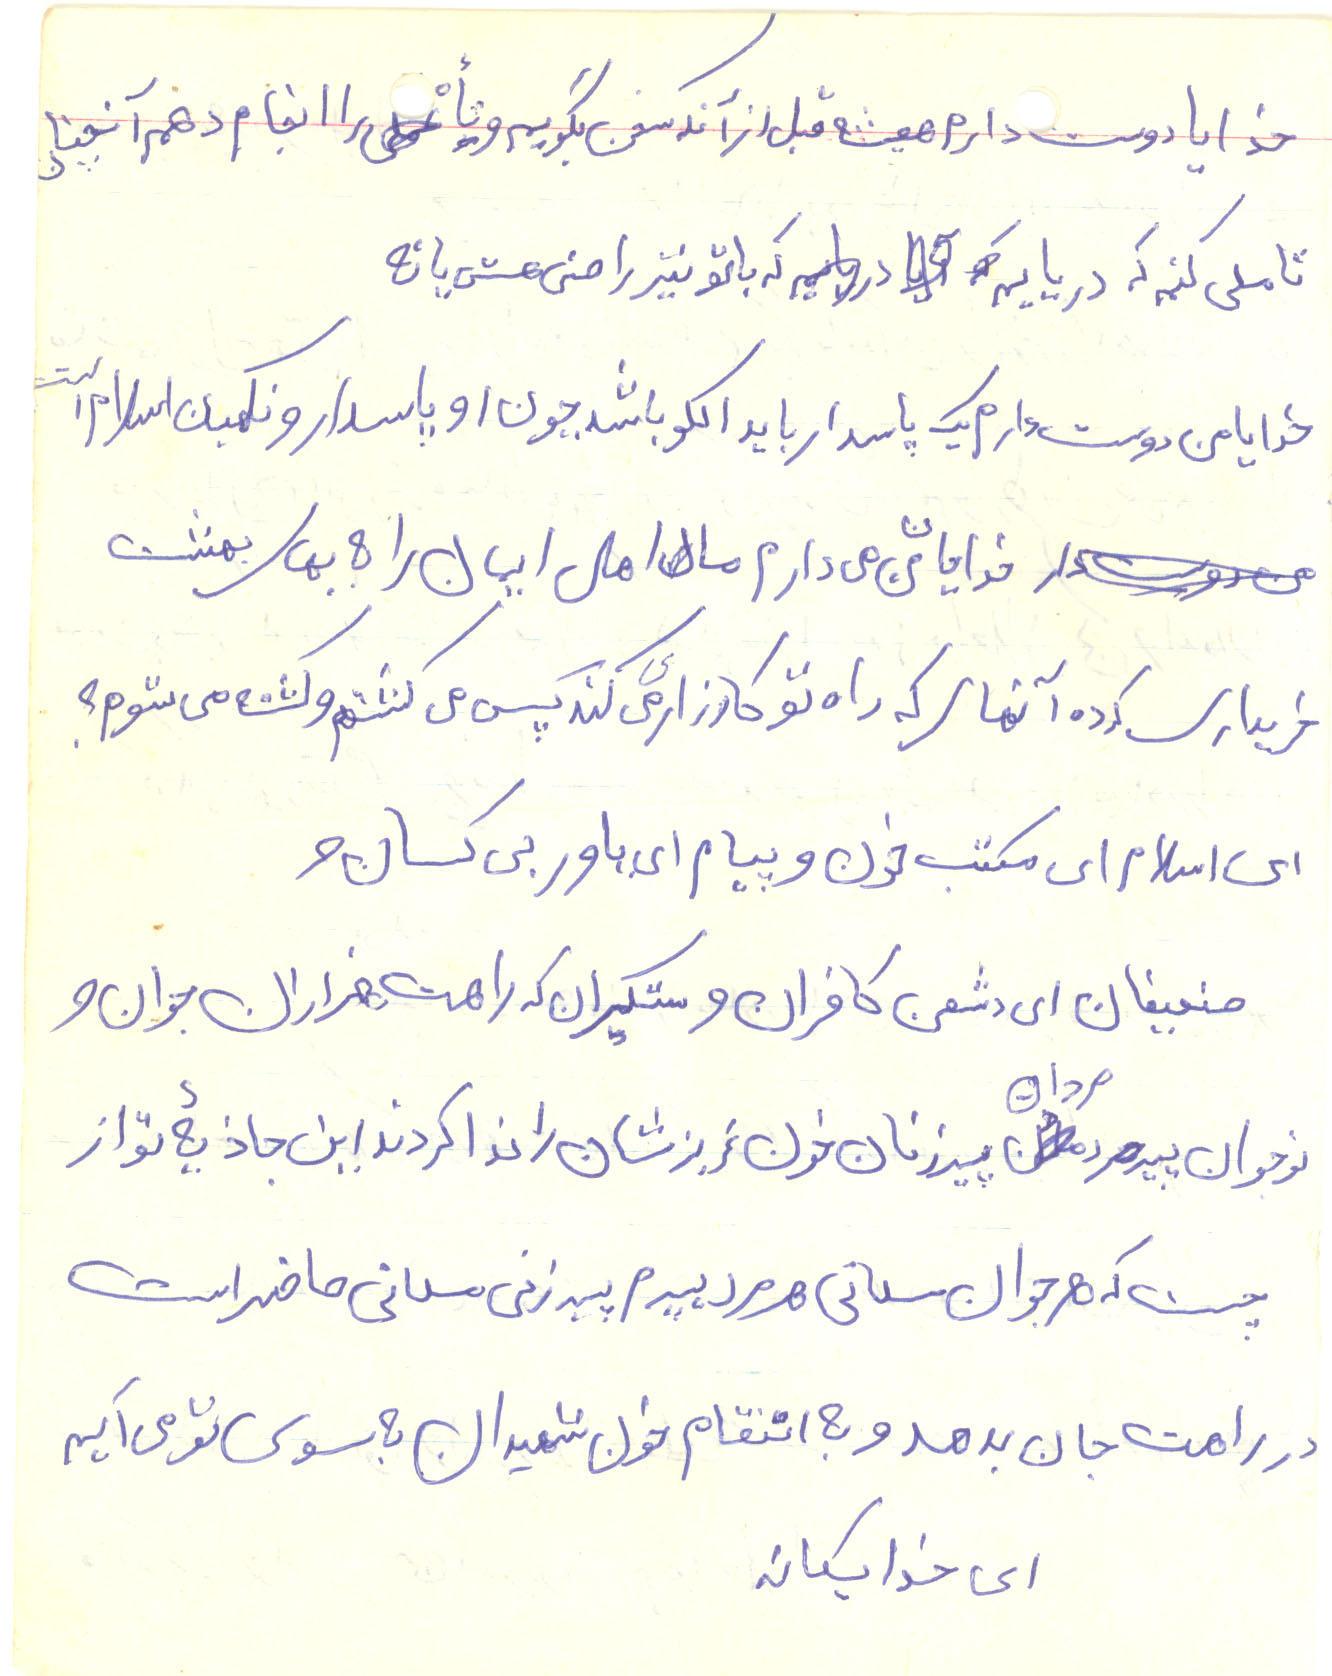 خدایا دوست دارم همیشه قبل از آنکه سخن بگویم و یا عملی را انجام دهم آنچنان
تاملی کنم که دریابم که با تو نیز راضی هستی یا نه
خدایا من دوست دارم یک پاسدار باید الگو باشد چون او پاسدار و نگهبان اسلام است
خدایا من می دارم مال اهل ایمان را به بهای بهشت
خریداری کرده آنهای که راه تو کارزار می کنند پس می کشم و کشته می شوم؟
ای اسلام ای مکتب خون و پیام ای یاور بی کسان و
ضعیفان ای دشمن کافران و ستمگیران که راهت هزاران جوان و
نوجوان پیر مردان پیرزنان خون عزیزشان را فدا کردند این جاذبهٔ تو از
چیست که هر جوان مسلمانی هر مرد پیرم پیرزنی مسلمانی حاضر است
در راهت جان بدهد و به انتقام خون شهیدان به سوی تو می آییم
ای خدا یگانه